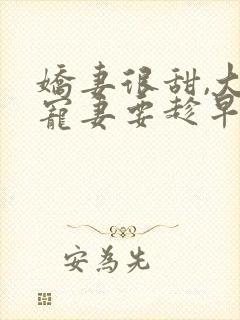 嬌妻很甜,大
寵妻要趁早
安為先